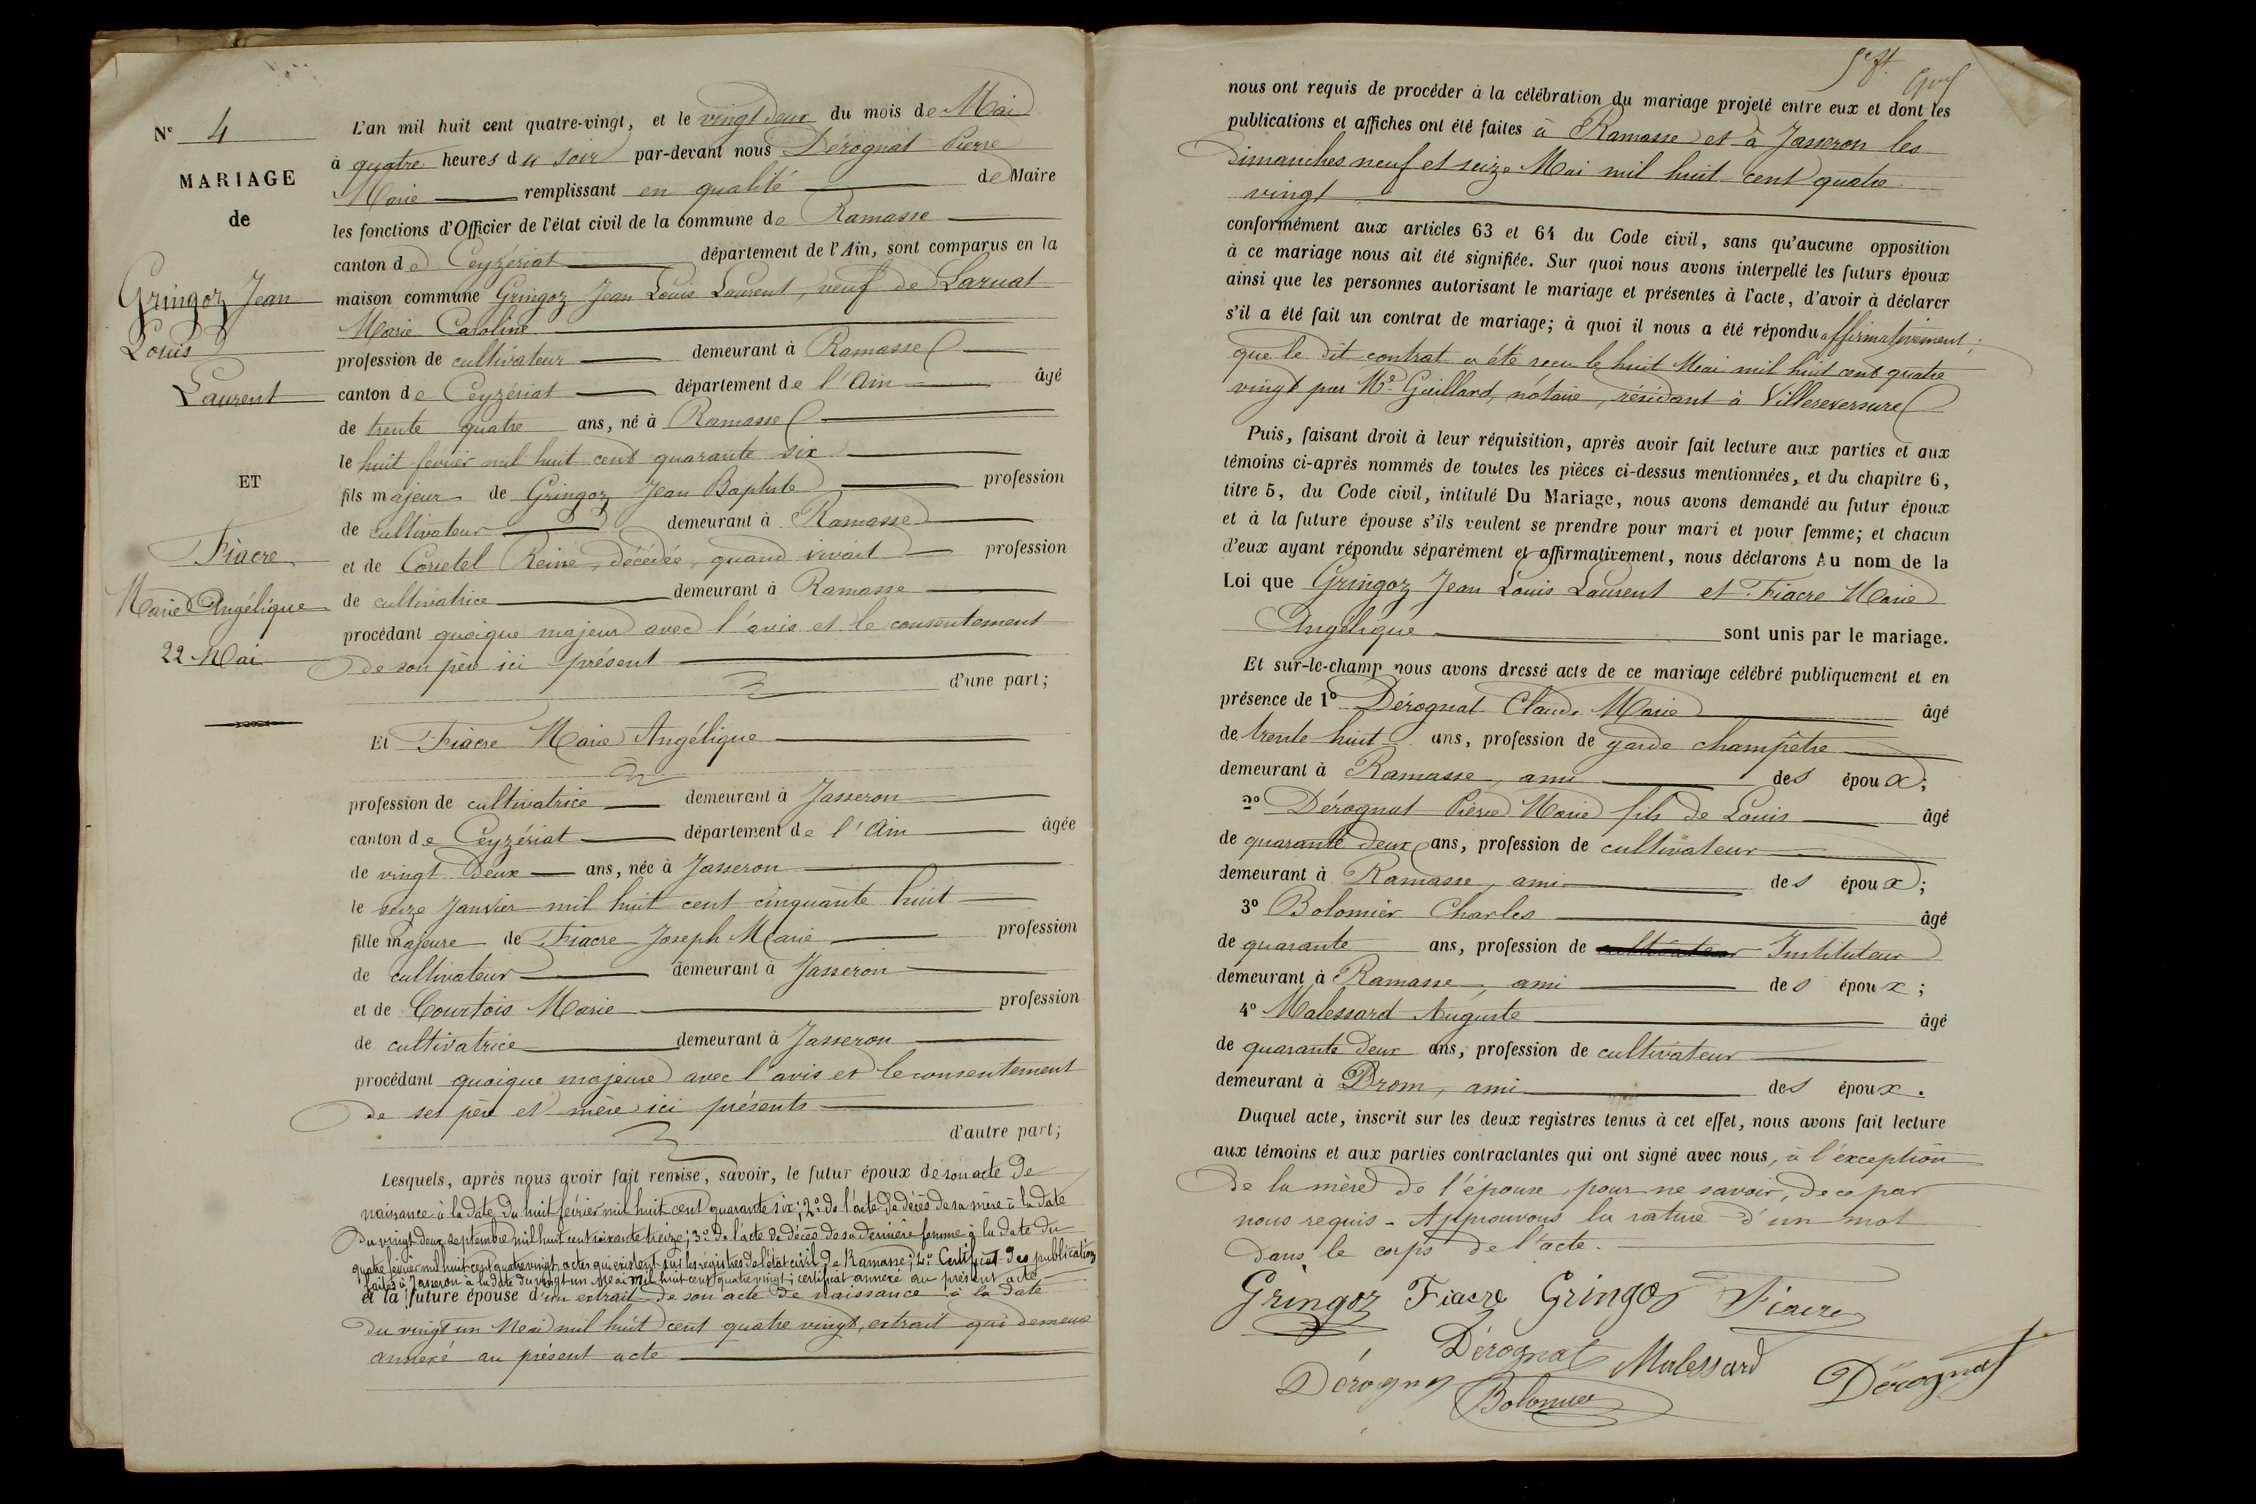 N° 4
MARIAGE
de
Gringoz Jean
Louis
Laurent
ET
Fiacre
Marie Angélique
22 Mai
L'an mil huit cent quatre-vingt, et le vingt deux du mois de Mai
à quatre heures du soir par-devant nous Dérognat Pierre
Marie remplissant en qualité de Maire
les fonctions d'Officier de l'état civil de la commune de Ramasse
canton de Ceyzériat département de l'Ain, sont comparus en la
maison commune Gringoz Jean Louis Laurent, veuf de Laruat
Marie Caroline
profession de cultivateur demeurant à Ramasse
canton de Ceyzériat département de l'Ain âgé
de trente quatre ans, né à Ramasse
le huit février mil huit cent quarante six
fils majeur de Gringoz Jean Baptiste profession
de cultivateur demeurant à Ramasse
et de Reine, décédée, quand vivait profession
de cultivatrice demeurant à Ramasse
procédant quoique majeur avec l'avis et le consentement
de son père ici présent
d'une part;
Et Fiacre Marie Angélique
profession de cultivatrice demeurant à Jasseron
canton de Ceyzériat département de l'Ain âgée
de vingt deux ans, née à Jasseron
le seize Janvier mil huit cent cinquante huit
fille majeure de Fiacre Joseph Marie profession
de cultivateur demeurant à Jasseron
et de Courtois Marie profession
de cultivatrice demeurant à Jasseron
procédant quoique majeure avec l'avis et le consentement
de ses père et mère ici présents
d'autre part;
Lesquels, après nous avoir fait remise, savoir, le futur époux de son acte de
naissance à la date du huit février mil huit cent quarante six; 2° de l'acte de décès de sa mère à la date
du vingt deux septembre mil huit cent soixante treize; 3° de l'acte de décès de sa dernière femme à la date du
quatre février mil huit cent quatre vingt, actes qui existent sur les registres de l'état civil de Ramasse; 4° Certificat des publications
faites à Jasseron à la date du vingt un Mai mil huit cent quatre vingt; certificat annexé au présent acte
et la future épouse d'un extrait de son acte de naissance à la date
du vingt un Mai mil huit cent quatre vingt, extrait qui demeure
annexé au présent acte
nous ont requis de procéder à la célébration du mariage projeté entre eux et dont les
publications et affiches ont été faites à Ramasse et à Jasseron les
Dimanches neuf et seize Mai mil huit cent quatre
vingt
conformément aux articles 63 et 64 du Code civil, sans qu'aucune opposition
à ce mariage nous ait été signifiée. Sur quoi nous avons interpellé les futurs époux
ainsi que les personnes autorisant le mariage et présentes à l'acte, d'avoir à déclarer
s'il a été fait un contrat de mariage; à quoi il nous a été répondu affirmativement;
que le dit contrat a été reçu le huit Mai mil huit cent quatre
vingt par Me Gaillard, notaire, résidant à Villereversure
Puis, faisant droit à leur réquisition, après avoir fait lecture aux parties et aux
témoins ci-après nommés de toutes les pièces ci-dessus mentionnées, et du chapitre 6,
titre 5, du Code civil, intitulé Du Mariage, nous avons demandé au futur époux
et à la future épouse s'ils veulent se prendre pour mari et pour femme; et chacun
d'eux ayant répondu séparément et affirmativement, nous déclarons Au nom de la
Loi que Gringoz Jean Louis Laurent et Fiacre Marie
Angélique sont unis par le mariage.
Et sur-le-champ nous avons dressé acte de ce mariage célébré publiquement et en
présence de 1° Dérognat Claude Marie âgé
de trente huit ans, profession de garde champêtre
demeurant à Ramasse, ami des époux;
2° Dérognat Pierre Marie fils de Louis âgé
de quarante deux ans, profession de cultivateur
demeurant à Ramasse, ami des époux;
3° Bolomier Charles âgé
de quarante ans, profession de cultivateur Instituteur
demeurant à Ramasse, ami des époux;
4° Malessard Auguste âgé
de quarante deux ans, profession de cultivateur
demeurant à Drom, ami des époux.
Duquel acte, inscrit sur les deux registres tenus à cet effet, nous avons fait lecture
aux témoins et aux parties contractantes qui ont signé avec nous, à l'exception
de la mère de l'épouse, pour ne savoir, de ce par
nous requis - Approuvons la rature d'un mot
dans le corps de l'acte.
Gringoz Fiacre Gringoz Fiacre
Dérognat Malessard
Dérognat Bolomier Dérognat